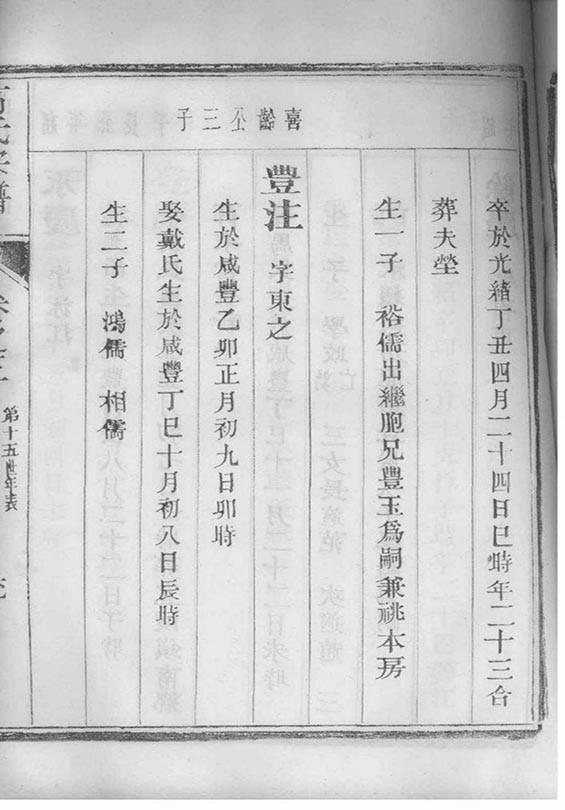 喜齡公三子
卒於光緒丁丑四月二十四日巳時年二十三合
葬夫塋
生一子 裕儒出繼胞兄豐玉爲嗣兼祧本房
豐注 字東之
生於咸豐乙卯正月初九日卯時
娶戴氏生於咸豐丁巳十月初八日辰時
生二子 鴻儒 相儒
第十五世年表